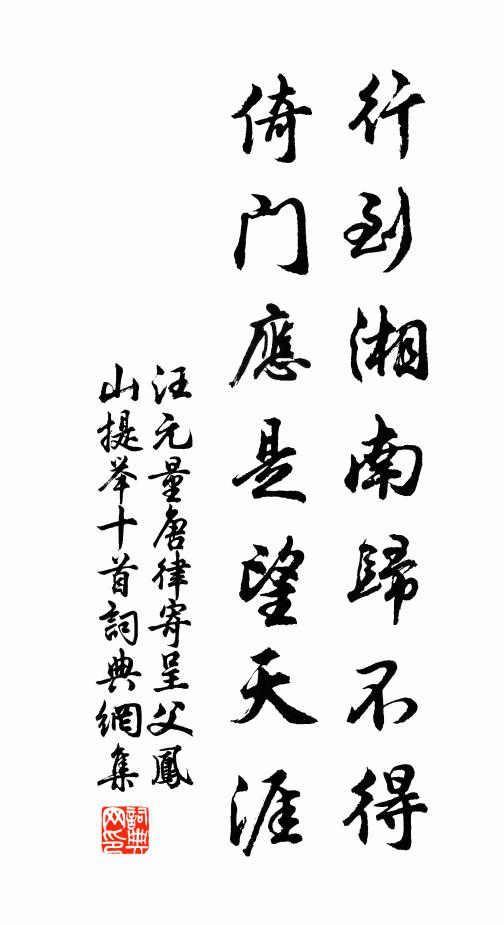 行到湘南歸不得
倚門應是望天涯
汪元量唐律寄呈父鳳
山提举十首詞典網集
詞典网印